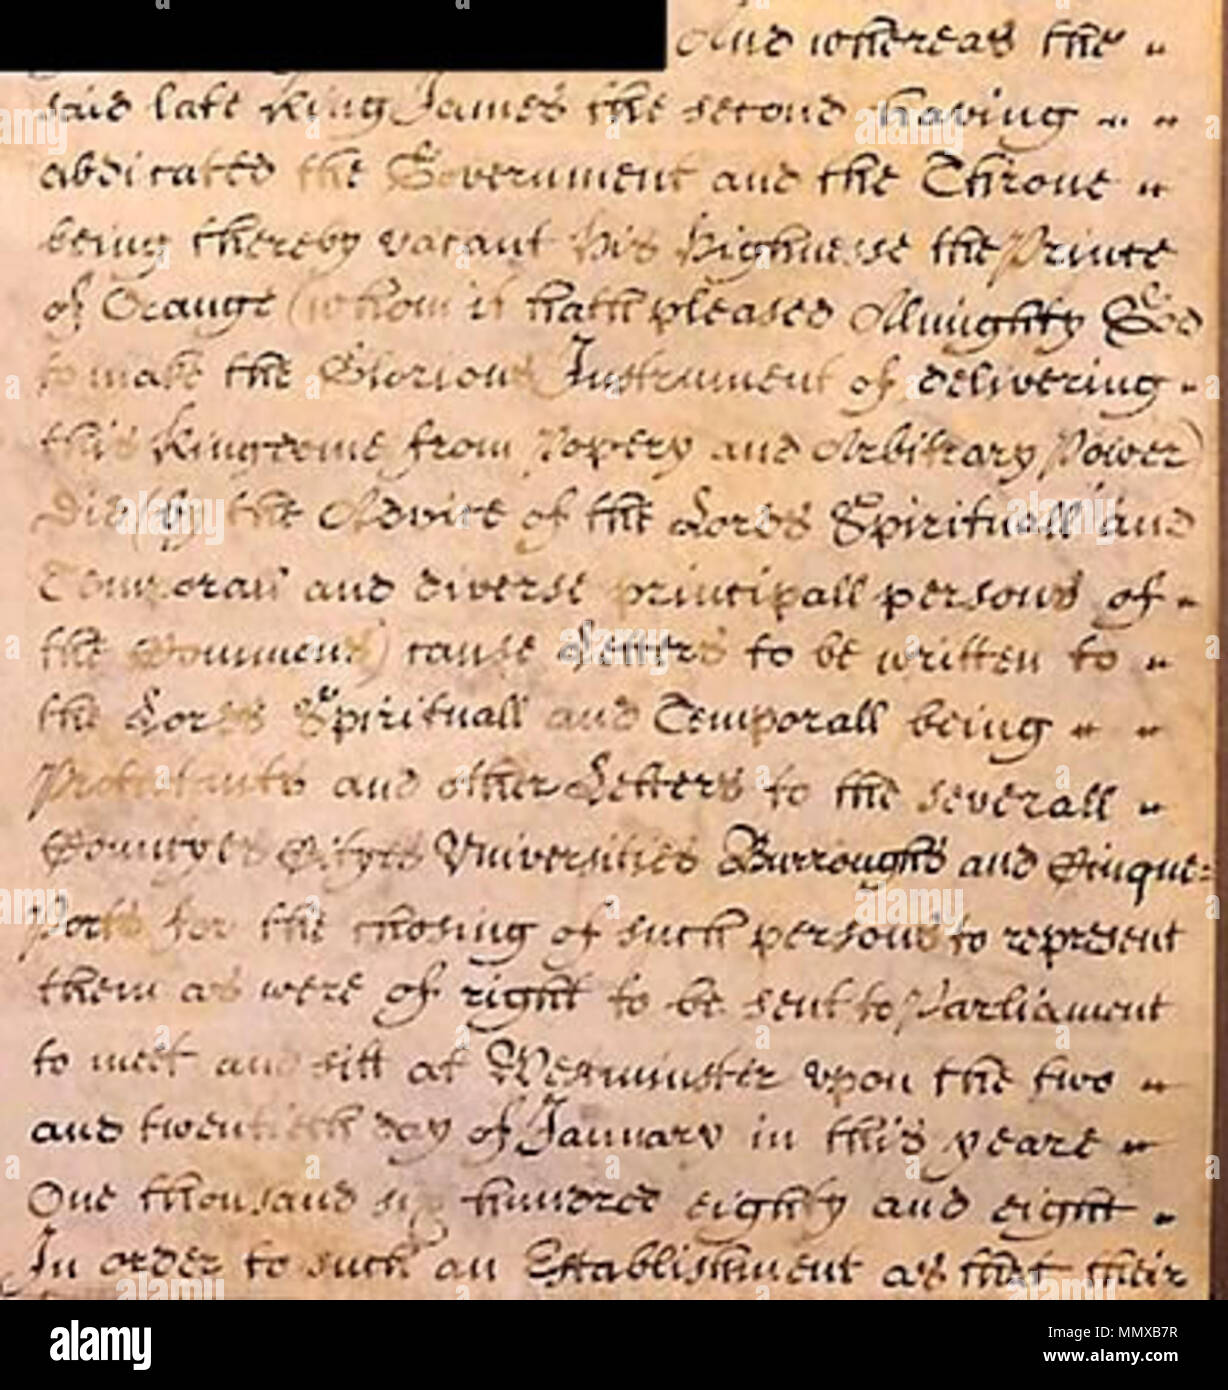 And whereas the
said late King James the second having
abdicated the Government and the Throne
being thereby vacant his Highnesse the Prince
of Orange (whom it hath pleased Almighty God
to make the Glorious Instrument of delivering
this Kingdome from Popery and Arbitrary Power)
Did (by the Advice of the Lords Spirituall and
Temporall and diverse principall persons of
the Commons) cause Letters to be written to
the Lords Spirituall and Temporall being
Protestants and other Letters to the severall
Countyes Cityes Universities Burroughs and Cinque=
Ports for the chosing of such persons to represent
them as were of right to be sent to Parliament
to meet and sitt at Westminster upon the two
and twentieth day of January in this yeare
One thousand six hundred eighty and eight
In order to such an Establishment as that their
alamy
Image ID: MMXB7R
www.alamy.com